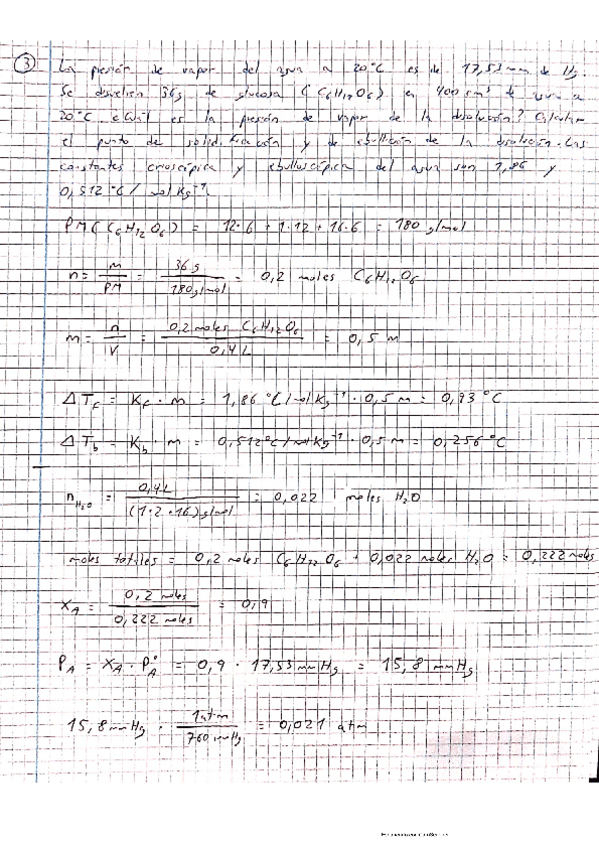 3 La presión de vapor del agua a 20°C es de 17,53 mm de Hg.
Se disuelven 36g de glucosa (C6H12O6) en 400 cm³ de agua a
20°C. ¿Cuál es la presión de vapor de la disolución? Calcular
el punto de solidificación y de ebullición de la disolución. Las
constantes crioscópica y ebulloscópica del agua son 1,86 y
0,512 °C/mol Kg⁻¹
PM(C6H12O6) = 12·6 + 1·12 + 16·6 = 180 g/mol
n = m/PM = 36g/180g/mol = 0,2 moles C6H12O6
m = n/V = 0,2 moles C6H12O6/0,4 L = 0,5 m
ΔTf = Kf · m = 1,86 °C/mol Kg⁻¹ · 0,5 m = 0,93 °C
ΔTb = Kb · m = 0,512 °C/mol Kg⁻¹ · 0,5 m = 0,256 °C
nH2O = 0,4 L/(1·2·16) g/mol = 0,022 moles H2O
moles totales = 0,2 moles C6H12O6 + 0,022 moles H2O = 0,222 moles
XA = 0,2 moles/0,222 moles = 0,9
PA = XA · P°A = 0,9 · 17,53 mmHg = 15,8 mmHg
15,8 mmHg · 1 atm/760 mmHg = 0,021 atm